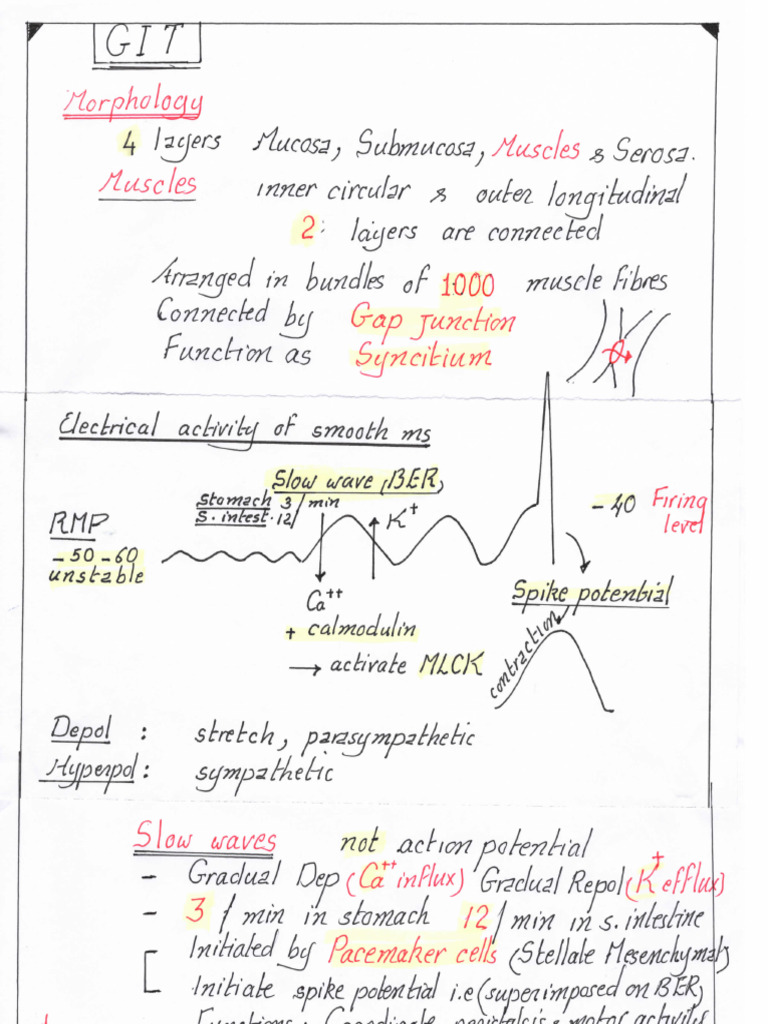 GIT
Morphology
4 layers Mucosa, Submucosa, Muscles & Serosa.
Muscles inner circular & outer longitudinal
2: layers are connected
Arranged in bundles of 1000 muscle fibres
Connected by Gap junction
Function as Syncitium
Electrical activity of smooth ms
Slow wave (BER)
Stomach 3 / min
S. intest. 12/
K+
-40 Firing level
RMP
-50 -60
unstable
Ca++
+ calmodulin
→ activate MLCK
Spike potential
contraction
Depol : stretch, parasympathetic
Hyperpol : sympathetic
Slow waves not action potential
- Gradual Dep (Ca++ influx) Gradual Repol (K+ efflux)
- 3 / min in stomach 12 / min in s. intestine
Initiated by Pacemaker cells (Stellate Mesenchymal)
Initiate spike potential i.e (superimposed on BER)
Functions : Coordinate peristalsis & motor activity